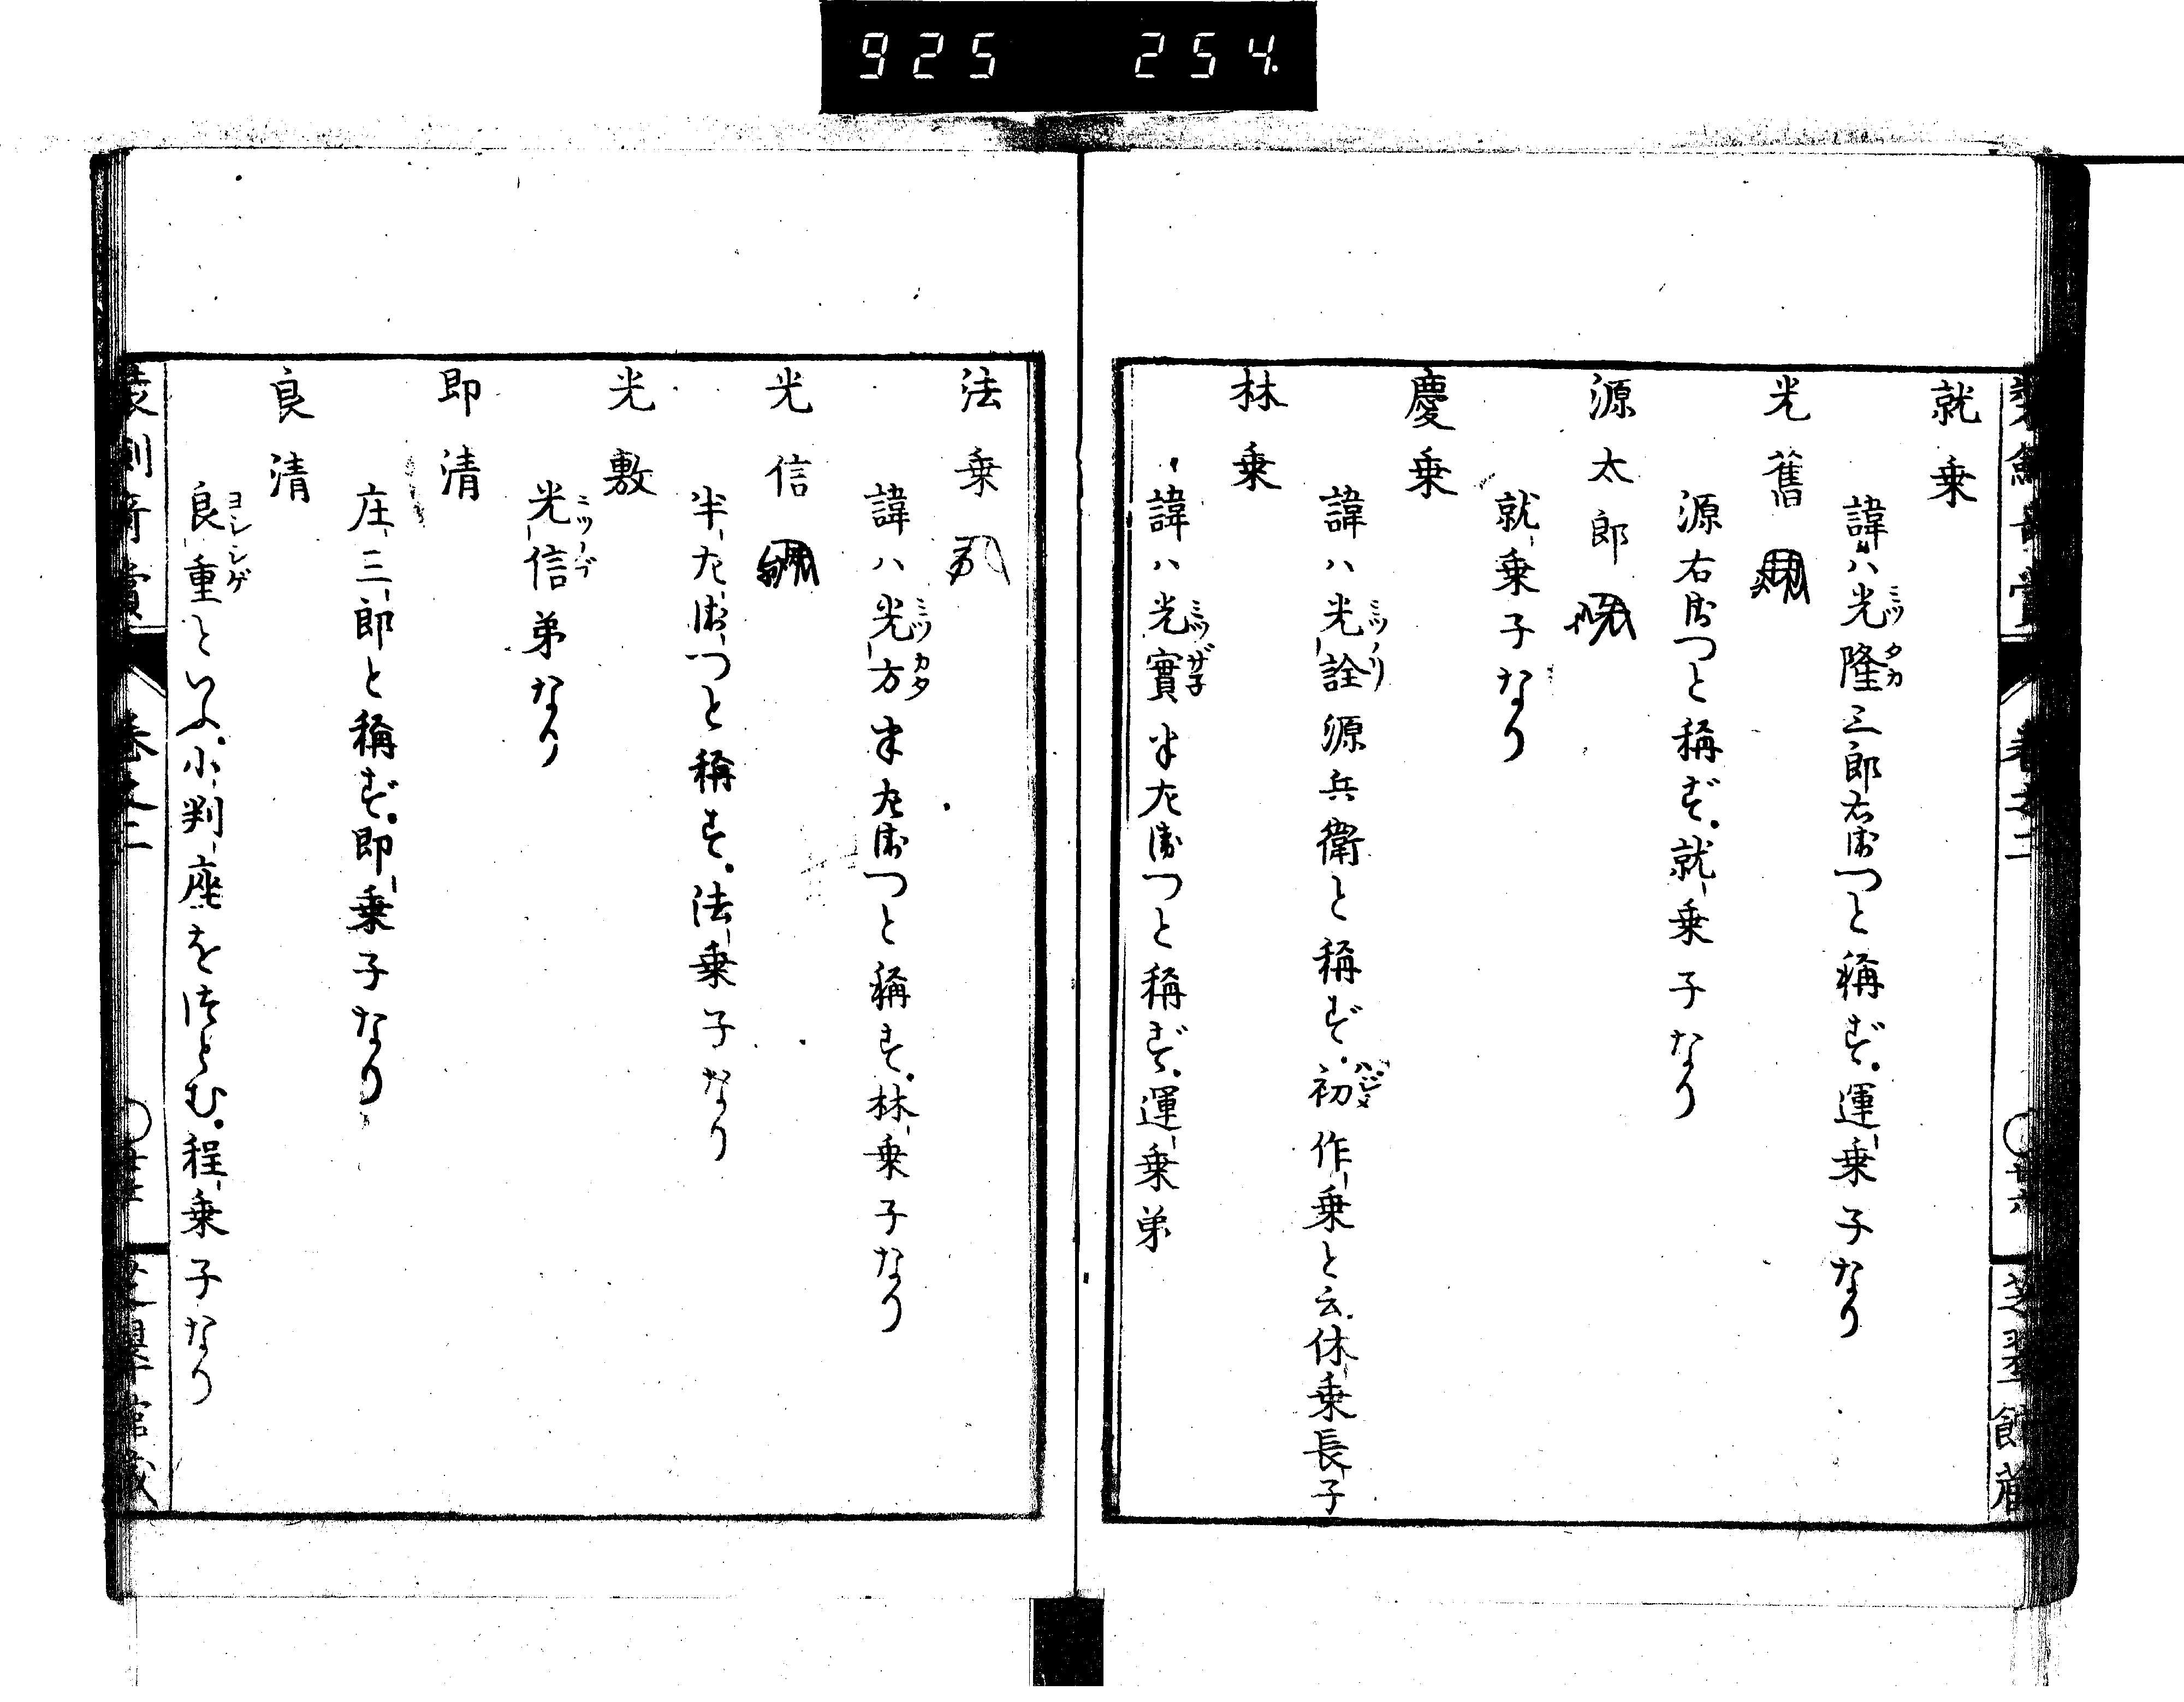 925 254
就乗
諱ハ光隆三郎右衛门と稱ず。運乗子なり
光舊
源右衛门と稱ず。就乗子なり
源太郎
就乗子なり
慶乗
諱ハ光詮源兵衛と稱ず。初作乗と云。休乗長子
林乗
諱ハ光實半左衛门と稱ず。運乗弟
法乗
諱ハ光方半左衛门と稱す。林乗子なり
光信
半左衛门と稱す。法乗子なり
光敷
光信弟なり
即清
庄三郎と稱ず。即乗子なり
良清
良重といふ。小判座をつとむ。程乗子なり